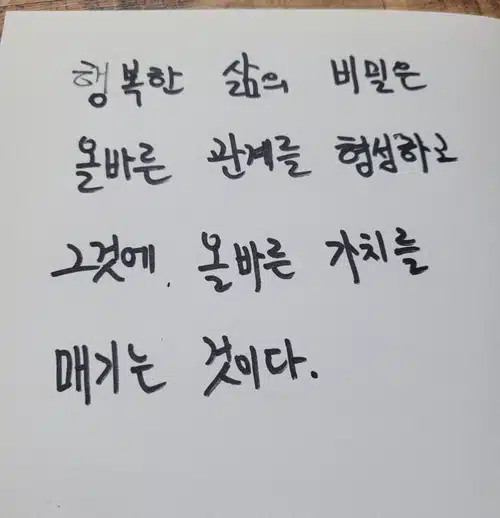 행복한 삶의 비밀은
올바른 관계를 형성하고
그것에 올바른 가치를
매기는 것이다.